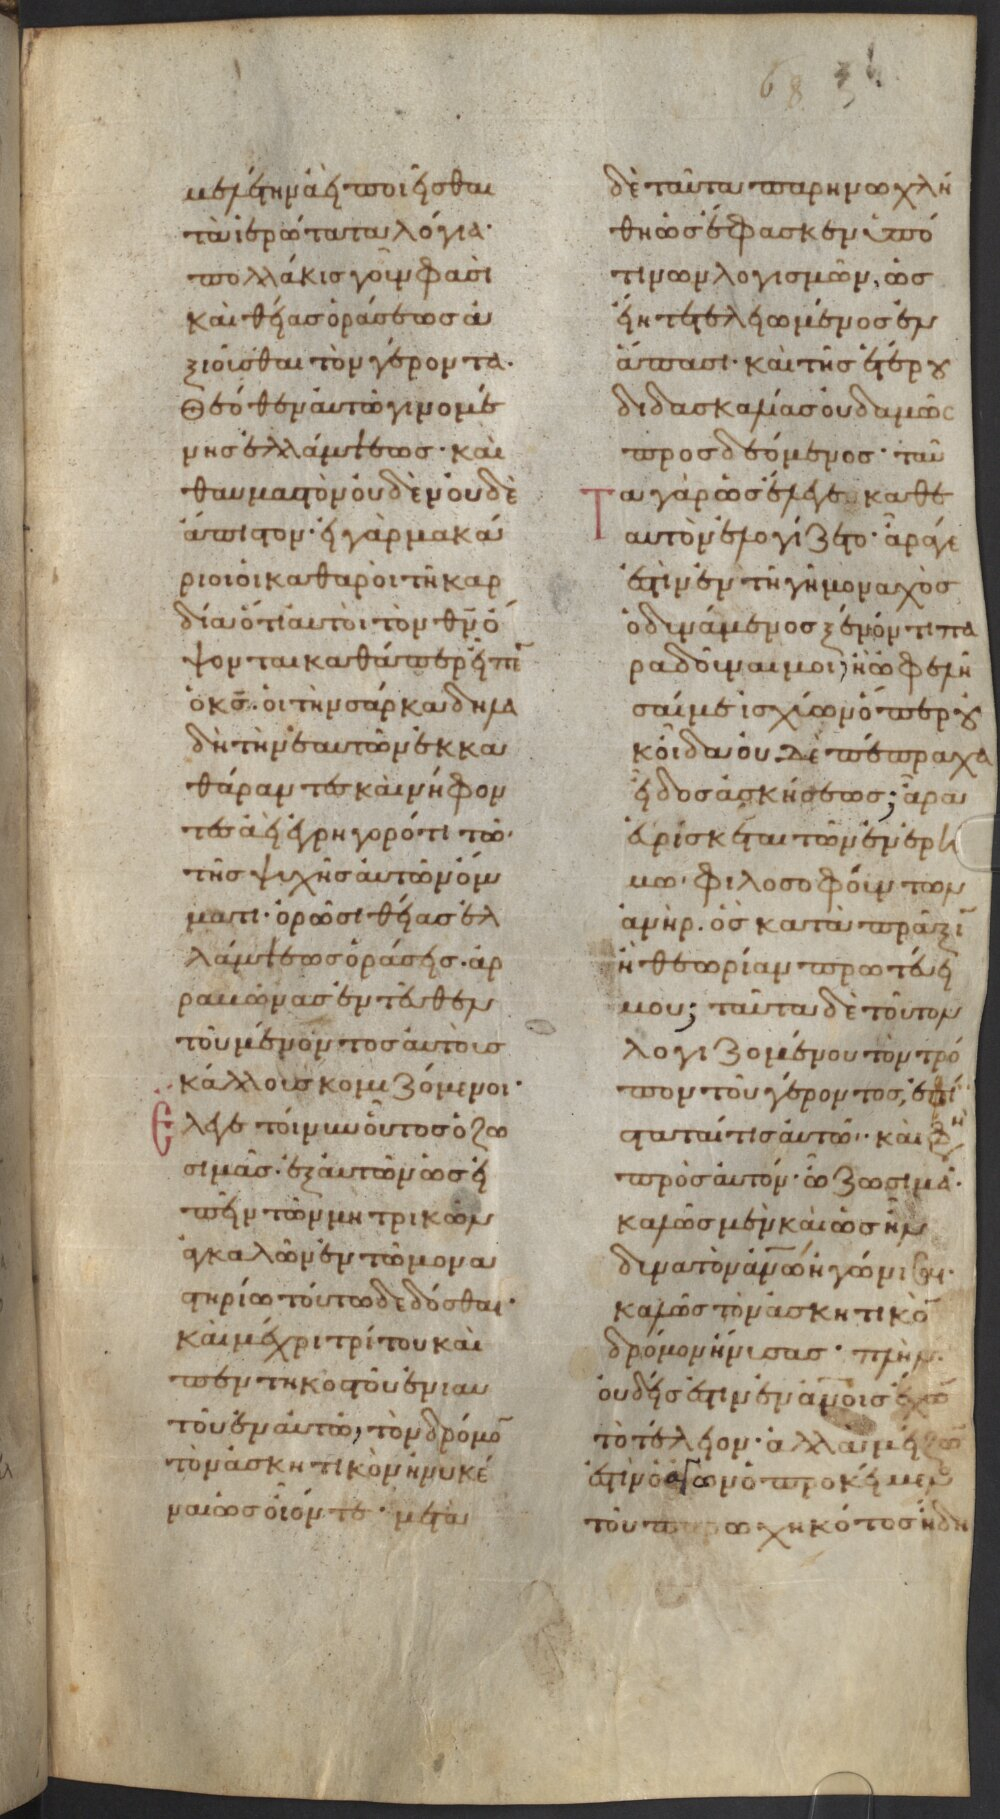 68
μελέτην ἀεὶ ποιεῖσθαι
τὰ ἱερώτατα λόγια·
πολλάκις γοῦν φασὶ
καὶ θείας ὁράσεως ἀ
ξιοῦσθαι τὸν γέροντα·
Θεόθεν αὐτῶ γινομέ
νης ἐλλάμψεως· καὶ
θαυμαστὸν οὐδὲν οὐδὲ
ἄπιστον· εἰ γὰρ μακά
ριοι οἱ καθαροὶ τῆ καρ
δία ὅτι αὐτοὶ τὸν θν̄ ὄ
ψονται καθάπερ εἶπε̄
ὁ κς̄· οἱ τὴν σάρκα δηλα
δὴ τὴν ἑαυτῶν ἐκκα
θάραντες καὶ νήφον
τες ἀεὶ ἐγρηγορότι τῶ·
τῆς ψυχῆς αὐτῶν ὄμ
ματι· ὁρῶσι θείας ἐλ
λάμψεως ὁράσεις· ἀρ
ραβῶνας ἐντεῦθεν
τοῦ μένοντος αὐτοῖς
κάλλους κομιζόμενοι·
Ελεγε τοίνυν οὗτος ὁ ζω
σιμᾶς· ἐξ αὐτῶν ὡς εἰ
πεῖν τῶν μητρικῶν
ἀγκαλῶν ἐν τῶ μονα
στηρίω τούτω δεδόσθαι·
καὶ μέχρι τρίτου καὶ
πεντηκοστοῦ ἐνιαυ
τοῦ ἐν αὐτῶ, τὸν δρόμο̄
τὸν ἀσκητικὸν ἠνυκέ
ναι ὡς οἷόν τε· μετὰ
δὲ ταῦτα παρηνωχλή
θη ὡς ἔφασκεν ὑπό
τινων λογισμῶν, ὡς
εἴη τετελειωμένος ἐν
ἅπασι· καὶ τῆς ἑτέρου
διδασκαλίας οὐδαμῶς
προσδεόμενος· ταῦ
Τα γὰρ ὡς ἔλεγε καθε
αυτὸν ἐλογίζετο· ἆρά γε
ἔστιν ἐν τῆ γῆ μοναχὸς
ὁ δυνάμενος ξένον τι πα
ραδοῦναί μοι, ἢ ὠφελῆ
σαί με ἰσχύων ὅπερ οὐ
κ οἶδα οὐδὲ πέπραχα
εἶδος ἀσκήσεως; ἆρα
εὑρίσκεται τῶν ἐν ἐρή
μω· φιλοσοφούντων
ἀνὴρ· ὃς κατὰ πρᾶξῑ
ἢ θεωρίαν πρωτεύει
μου; ταῦτα δὲ τοῦτον
λογιζομένου τὸν τρό
πον τοῦ γέροντος, ἐπί
σταταί τις αὐτῶ· καὶ φη
πρὸς αὐτόν· ὦ ζωσιμᾶ·
καλῶς μὲν καὶ ὡς ἦν
δυνατὸν ἀνω̄ ἠγώνισαι·
καλῶς τὸν ἀσκητικὸ̄
δρόμον ἤνυσας· πλὴν
οὐδείς ἐστιν ἐν ἀνοις ἔχω̄
τὸ τέλειον· ἀλλὰ μείζω̄
ἐστὶν ὁ ἀγὼν ὁ προκείμεν
τοῦ παρωχηκότος ἤδη